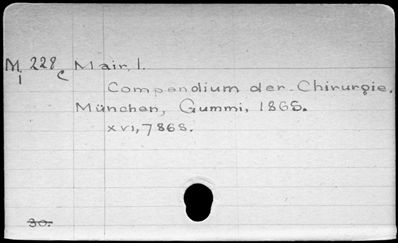 M 228 Mair, I.
1 c
Compendium der Chirurgie.
München, Gummi, 1868.
xvi, 786S.
30.